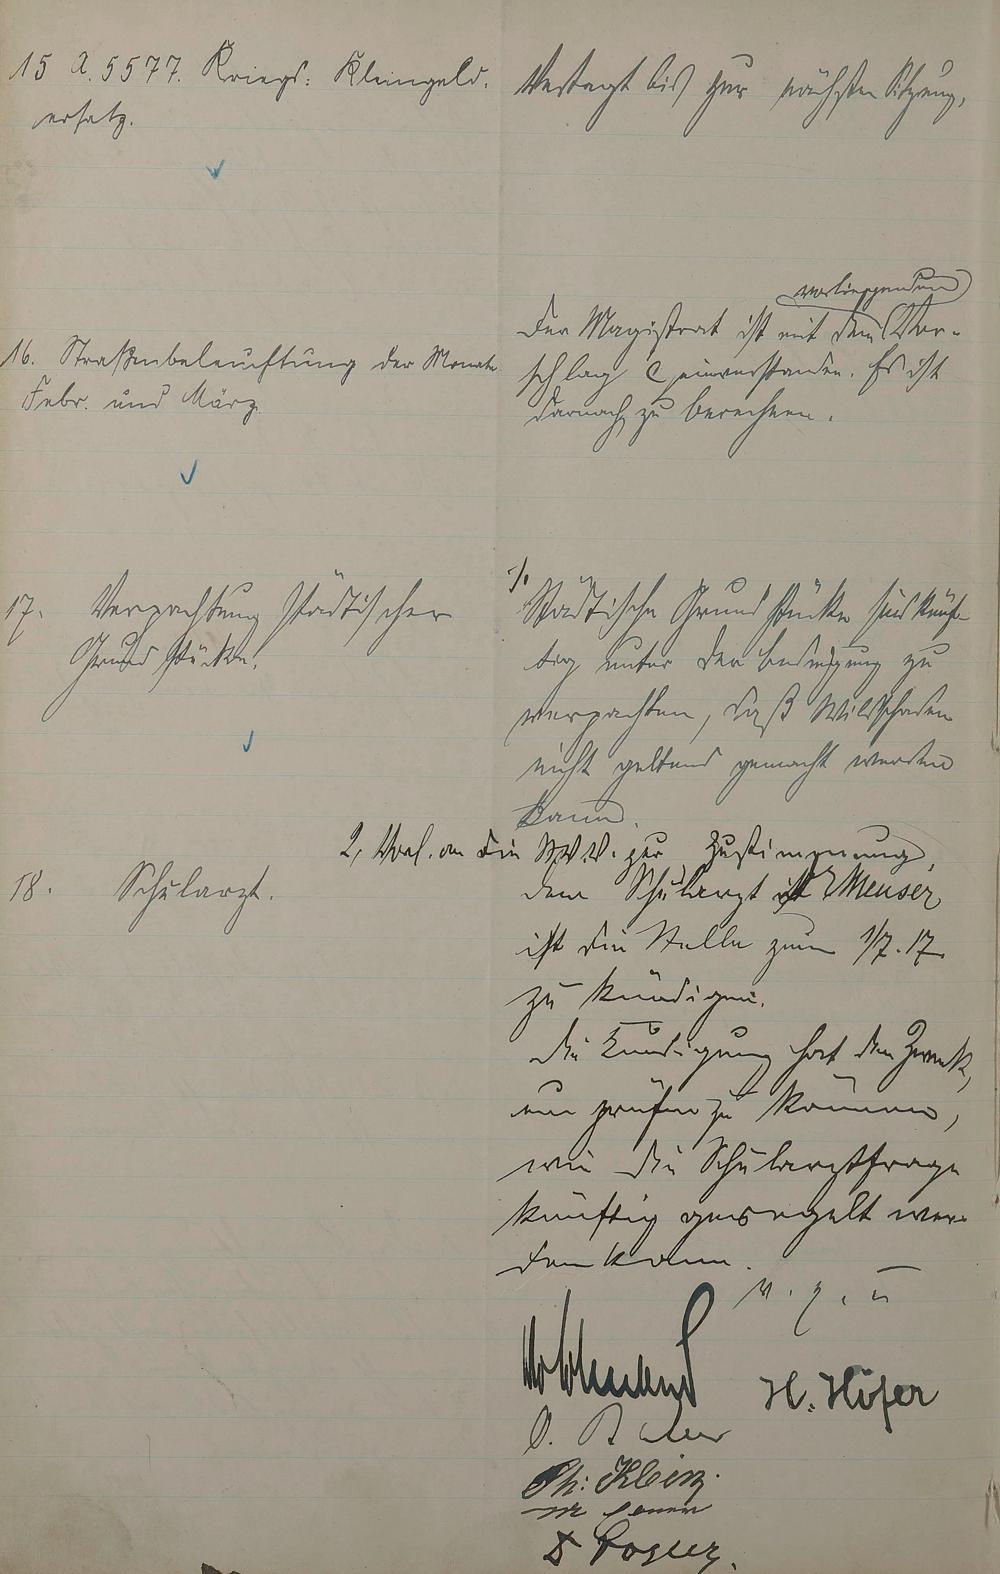 15 A. 5577. Kriegs: Kleingeld.
ersatz.
Vertagt bis zur nächsten Sitzung.
16. Straßenbeleuchtung der Monate
Febr. und März
vorliegenden
Der Magistrat ist mit dem Vor-
schlag C einverstanden. Es ist
darnach zu berechnen.
17. Verpachtung städtischer
Grundstücke.
1.
Städtische Grundstücke sind künf-
tig unter der Bedingung zu
verpachten, daß Wildschaden
nicht geltend gemacht werden
kann.
2, Vorl. an die zur Zustimmung,
18. Schularzt.
dem Schularzt Meuser
ist die Stelle zum 1/7. 17.
zu kündigen.
Die Kündigung hat den Zweck,
um prüfen zu können,
wie die Schularztfrage
künftig geregelt wer-
den kann.
v. g. u
H. Höfer
Ph: Klein